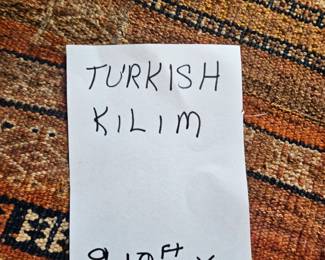 TURKISH
KILIM